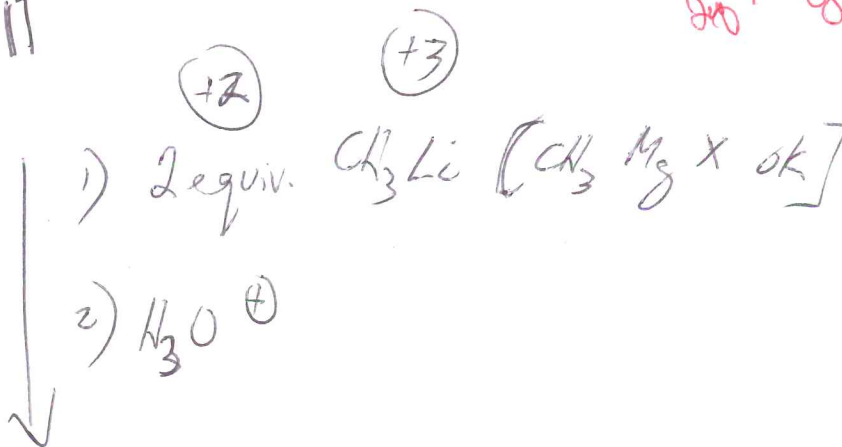 +2 +3
1) 2 equiv. CH3Li [CH3MgX ok]
2) H3O⊕